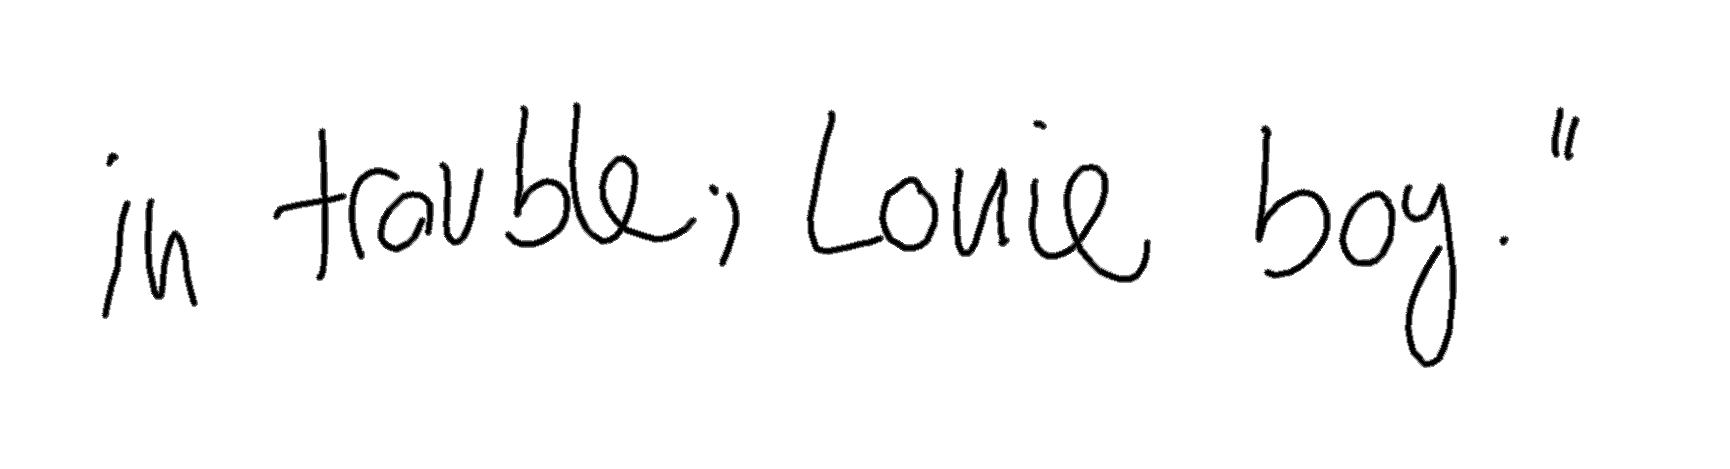 in trouble; Louie boy."